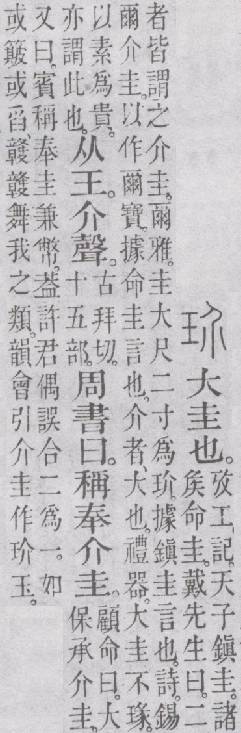 玠
大圭也。
攷工記。天子鎮圭。諸
矦命圭。戴先生曰。二
者皆謂之介圭。爾雅。圭大尺二寸爲玠。據鎮圭言也。詩。錫
爾介圭。以作爾寶。據命圭言也。介者、大也。禮器。大圭不瑑。
以素爲貴。
亦謂此也。
从王。介聲。
古拜切。
十五部。
周書曰。稱奉介圭。
顧命曰。大
保承介圭。
又曰。賓稱奉圭兼幣。葢許君偶誤合二爲一。如
或簸或舀、竷竷舞我之類。韻會引介圭作玠玉。